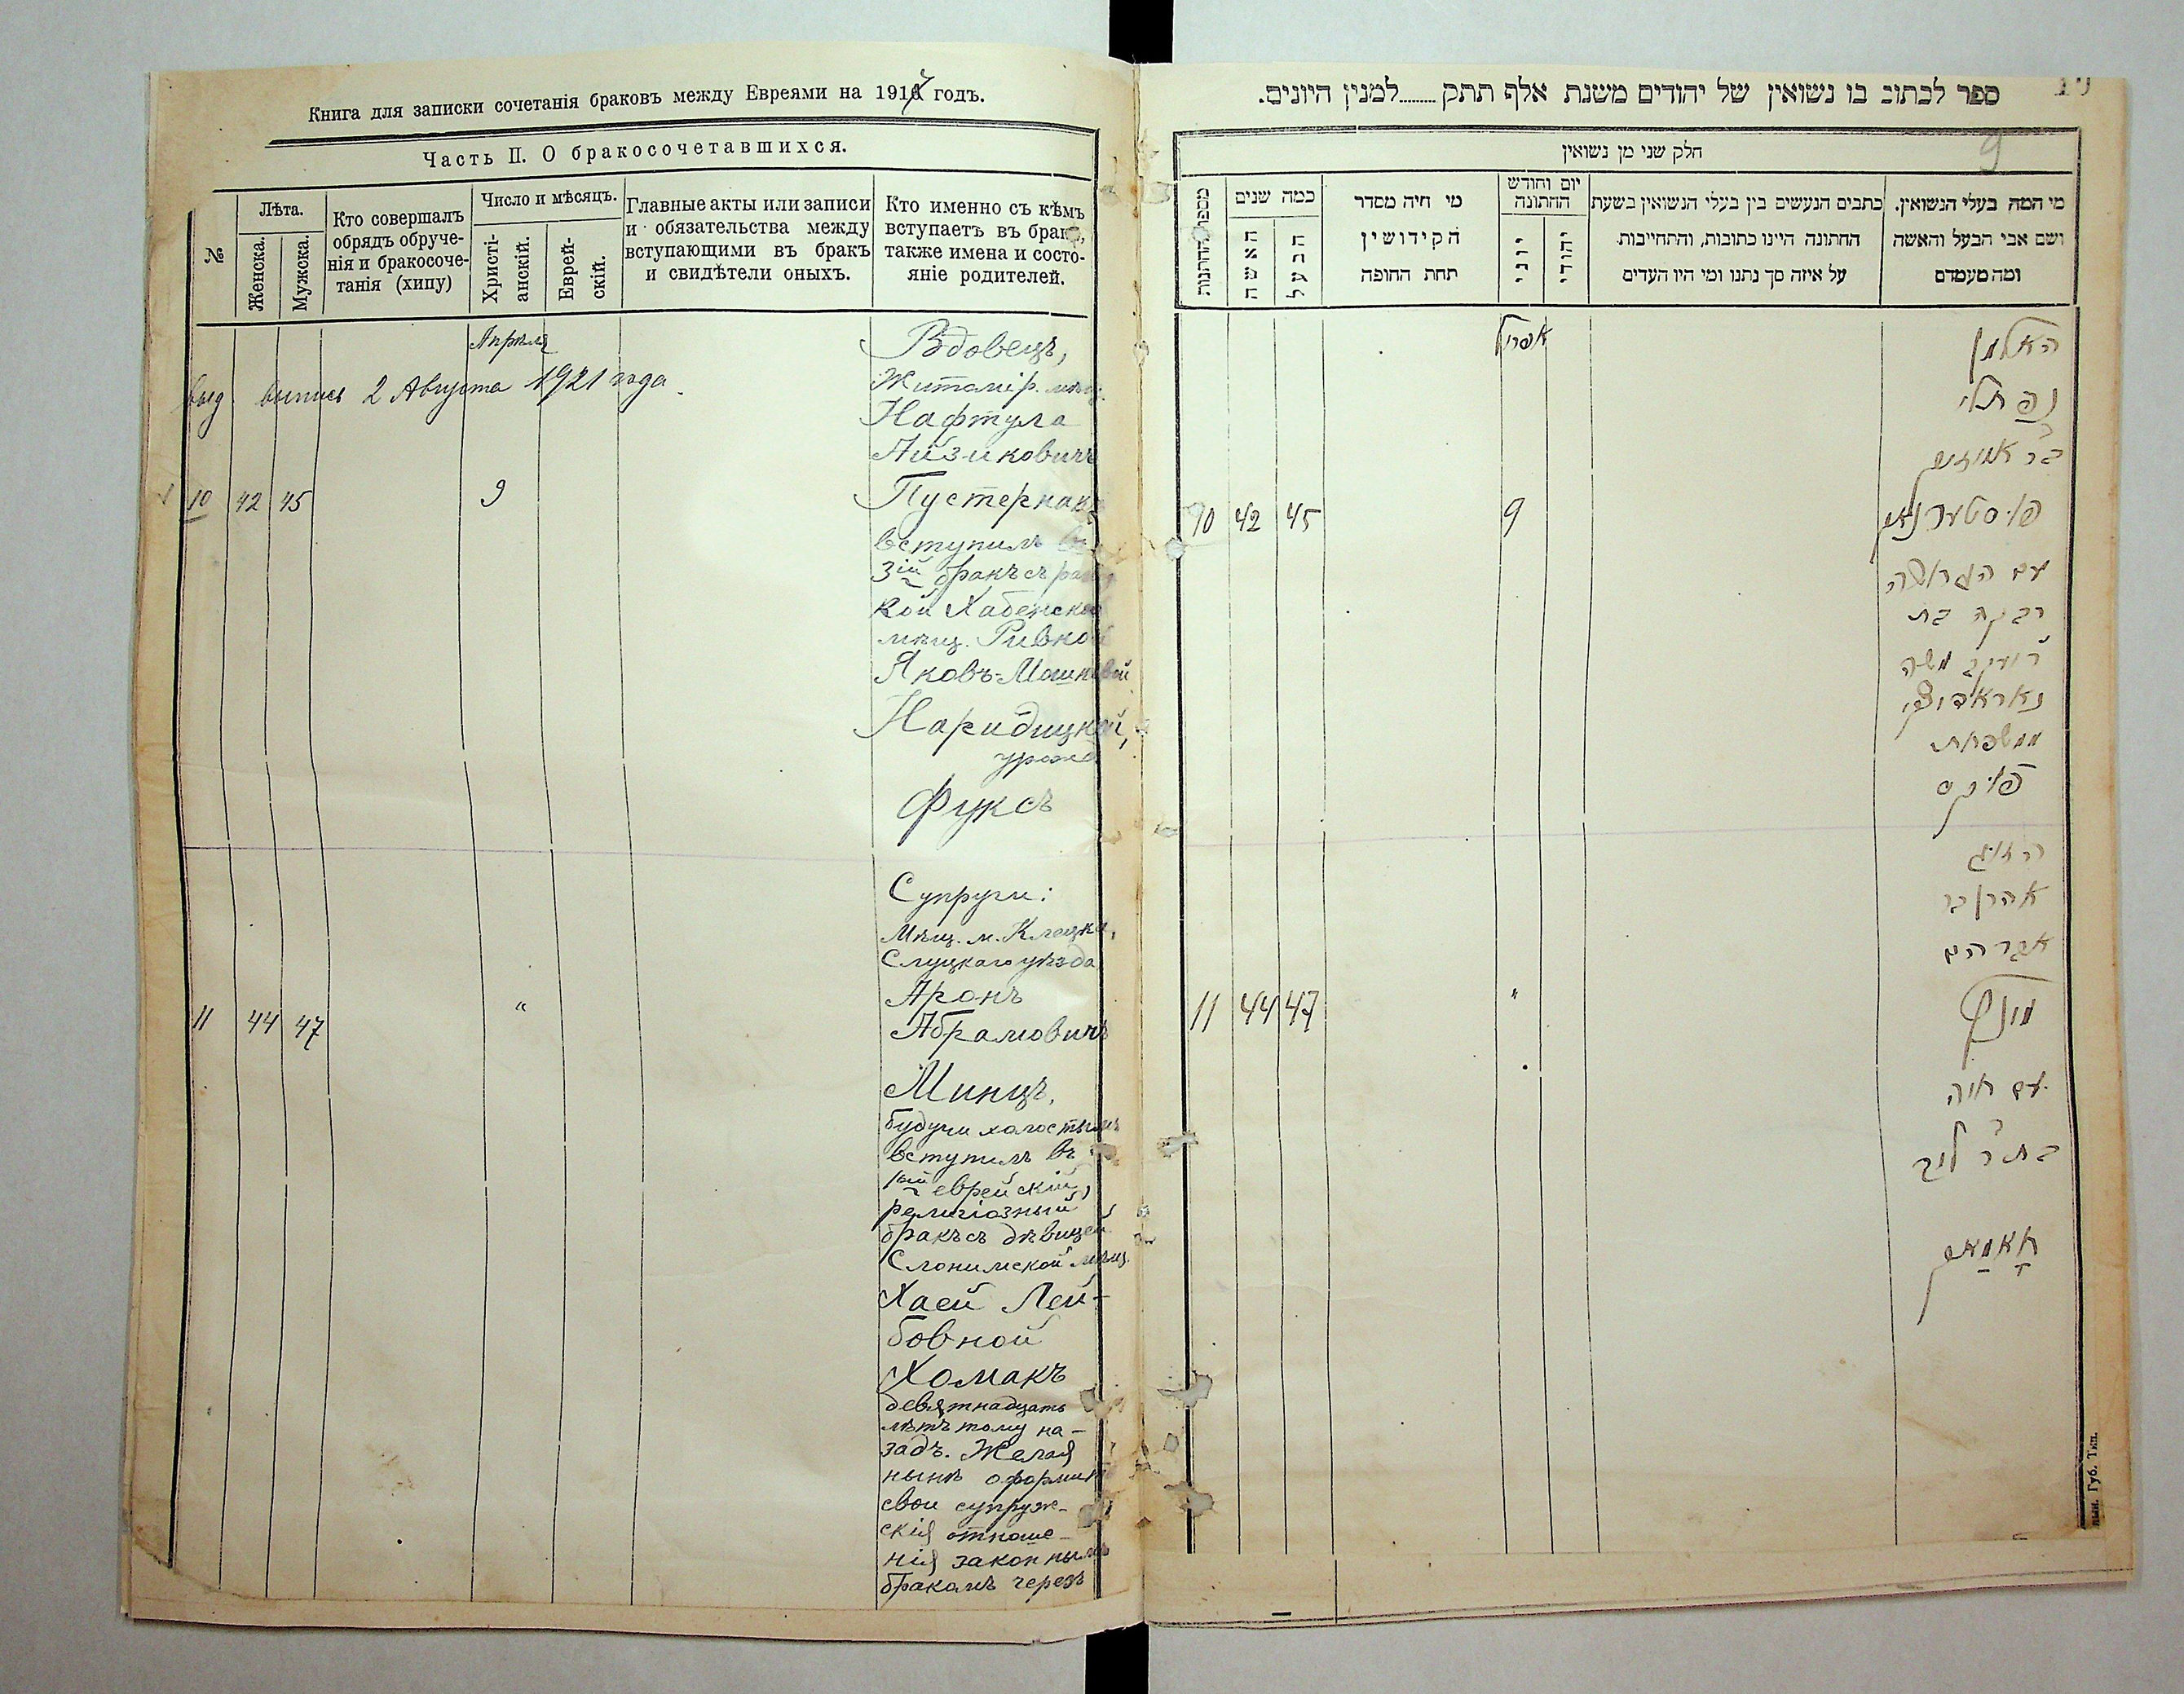 Книга для записки сочетанія браковъ между Евреями на 1917 годъ.
Часть II. О бракосочетавшихся.
№
Лѣта.
Женска.
Мужска.
Кто совершалъ
обрядъ обруче-
нія и бракосоче-
танія (хипу)
Число и мѣсяцъ.
Христі-
анскій.
Еврей-
скій.
Главные акты или записи
и обязательства между
вступающими въ бракъ
и свидѣтели оныхъ.
Кто именно съ кѣмъ
вступаетъ въ бракъ,
также имена и состо-
яніе родителей.
Апрѣля
выд. выпись 2 Августа 1921 года.
Вдовецъ,
Житомір. мѣщ.
Нафтула
Айзиковичъ
10 42 45 9
Пустернакъ
вступилъ въ
3ій бракъ съ
кой Хабенской
мѣщ. Ривкой
Яковъ-Мошковой
Наридицкой,
урожд
Фуксъ
Супруги:
Мѣщ. м. Клецка,
Слуцкаго уѣзда
Аронъ
11 44 47 "
Абрамовичъ
Минцъ,
будучи холостымъ
вступилъ въ
1ый еврейскій
религіозный
бракъ съ дѣвицей
Слонимской мѣщ.
Хаей Лей-
бовной
Хомакъ
девятнадцать
лѣтъ тому на-
задъ. Желая
нынѣ оформить
свои супруже-
скія отноше-
нія законнымъ
бракомъ черезъ
ספר לכתוב בו נשואין של יהודים משנת אלף תתק.........למנין היונים.
9
חלק שני מן נשואין
מספר החתונות
כמה שנים
האשה
הבעל
מי היה מסדר
הקידושין
תחת החופה
יום וחודש
החתונה
יוני
יהודי
כתבים הנעשים בין בעלי הנשואין בשעת
החתונה היינו כתובות, והתחייבות
על איזה סך נתנו ומי היו העדים
מי המה בעלי הנשואין.
ושם אבי הבעל והאשה
ומה מעמדם
אפריל
האלמן
נפתלי
בר אייזיק
10 42 45 9
פוסטערנאק
עם הגרושה
רבקה בת
ר' יעקב משה
נאראדיצקי
ממשפחת
פוקס
הזוג
אהרן בר
אברהם
11 44 47 "
מינץ
עם חיה
בת ר' ליב
חאמאק
нын. Губ. Тип.